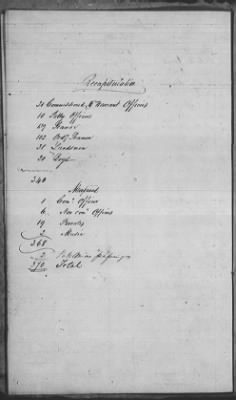 Recapitulation
Commissioned & Warrant Officers
Petty Officers
Seamen
102 Ordy Seamen
31 Landsmen
20 Boys
340
Marines
1 Com. Officer
6 Non com. Officers
19 Privates
2 Music
368
2 Passengers
370 Total